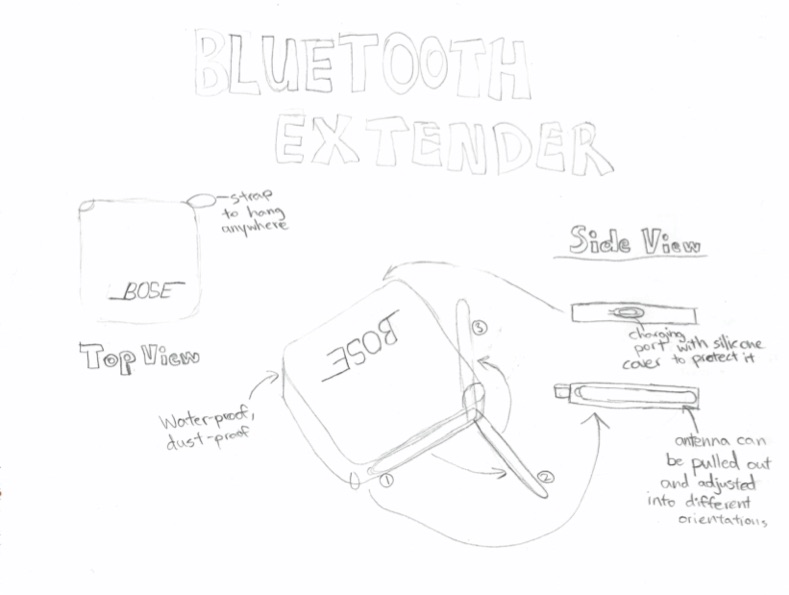 BLUETOOTH
EXTENDER
strap
to hang
anywhere
BOSE
Top View
Side View
charging
port with silicone
cover to protect it
BOSE
③
Water-proof,
dust-proof
①
②
antenna can
be pulled out
and adjusted
into different
orientations